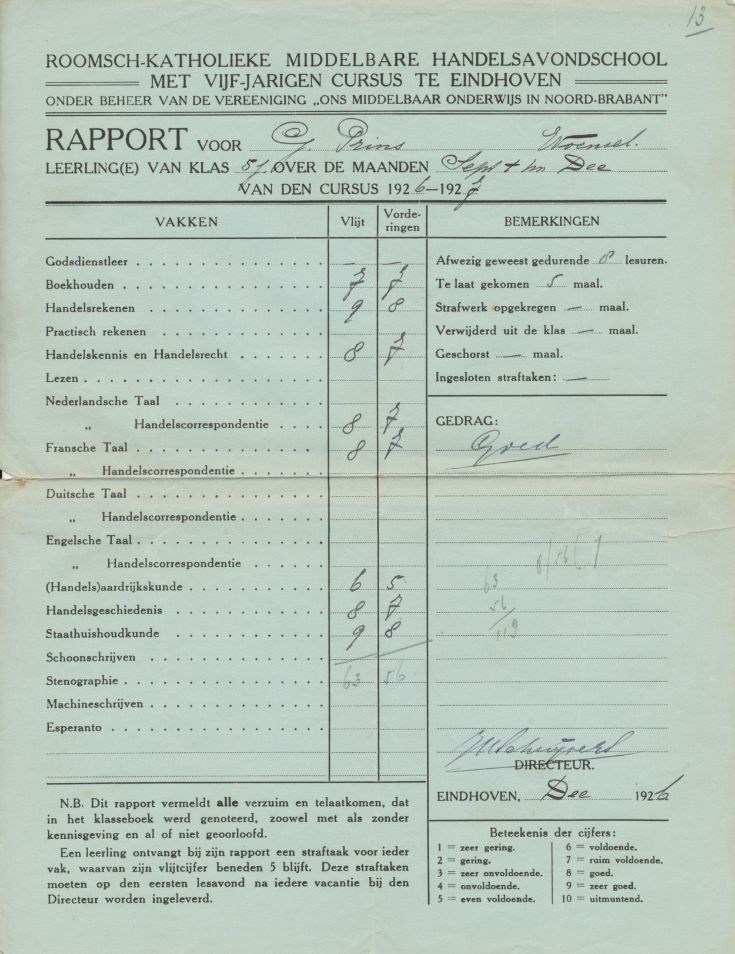 13
ROOMSCH-KATHOLIEKE MIDDELBARE HANDELSAVONDSCHOOL
MET VIJF-JARIGEN CURSUS TE EINDHOVEN
ONDER BEHEER VAN DE VEREENIGING „ONS MIDDELBAAR ONDERWIJS IN NOORD-BRABANT"
RAPPORT VOOR G. Prins Woensel.
LEERLING(E) VAN KLAS 5 OVER DE MAANDEN Sept t/m Dec
VAN DEN CURSUS 1926—1927
VAKKEN Vlijt Vorderingen BEMERKINGEN
Godsdienstleer — —
Boekhouden 7 7
Handelsrekenen 9 8
Practisch rekenen
Handelskennis en Handelsrecht 8 7
Lezen
Nederlandsche Taal
„ Handelscorrespondentie 8 7
Fransche Taal 8 7
„ Handelscorrespondentie
Duitsche Taal
„ Handelscorrespondentie
Engelsche Taal
„ Handelscorrespondentie
(Handels)aardrijkskunde 6 5
Handelsgeschiedenis 8 7
Staathuishoudkunde 9 8
Schoonschrijven
Stenographie 63 56
Machineschrijven
Esperanto
Afwezig geweest gedurende 8 lesuren.
Te laat gekomen 5 maal.
Strafwerk opgekregen — maal.
Verwijderd uit de klas — maal.
Geschorst — maal.
Ingesloten straftaken: —
GEDRAG:
Goed
8/56 \ 7
63
56
119
DIRECTEUR.
EINDHOVEN, Dec 1926
N.B. Dit rapport vermeldt alle verzuim en telaatkomen, dat
in het klasseboek werd genoteerd, zoowel met als zonder
kennisgeving en al of niet geoorloofd.
Een leerling ontvangt bij zijn rapport een straftaak voor ieder
vak, waarvan zijn vlijtcijfer beneden 5 blijft. Deze straftaken
moeten op den eersten lesavond na iedere vacantie bij den
Directeur worden ingeleverd.
Beteekenis der cijfers:
1 = zeer gering.
2 = gering.
3 = zeer onvoldoende.
4 = onvoldoende.
5 = even voldoende.
6 = voldoende.
7 = ruim voldoende.
8 = goed.
9 = zeer goed.
10 = uitmuntend.